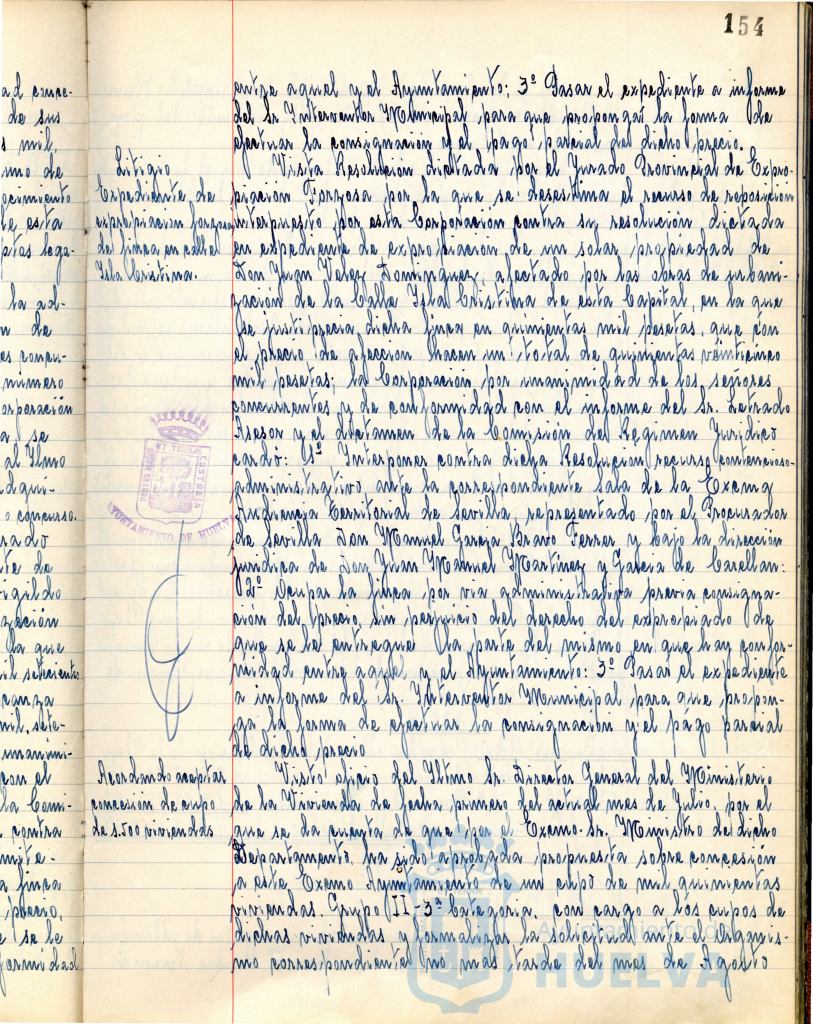 154
ad conce-
de sus
s mil,
uno de
ocimiento
de esta
ptos lega-
la ad-
n de
es concu-
número
orporación
a se
al Ylmo
adqui-
o concurso.
rado
te de
igildo
zación
la que
il setecientas
canza
mil, sete-
unanimi-
con el
la Comi-
contra
mite-
a finca
precio,
e se le
formidad
Litigio
Expediente de
expropiacion forzosa
de finca en calle
Ysla Cristina.
AYUNTAMIENTO DE HUELVA
Acordando aceptar
concesión de cupo
de 1.500 viviendas
entre aquel y el Ayuntamiento; 3º Pasar el expediente a informe
del Sr Ynterventor Municipal, para que proponga la forma de
efectuar la consignación y el pago parcial de dicho precio.
Vista Resolución dictada por el Jurado Provincial de Expro-
piación Forzosa por la que se desestima el recurso de reposición
interpuesto por esta Corporación contra su resolución dictada
en expediente de expropiación de un solar propiedad de
Don Juan Velez Dominguez, afectado por las obras de urbani-
zación de la Calle Ysla Cristina de esta Capital, en la que
se justiprecia dicha finca en quinientas mil pesetas, que con
el precio de afección hacen un total de quinientas veinticinco
mil pesetas; la Corporación por unanimidad de los señores
concurrentes y de conformidad con el informe del Sr. Letrado
Asesor y el dictamen de la Comisión de Regimen Juridico
cardó: 1º Ynterponer contra dicha Resolución recurso contencioso-
administrativo ante la correspondiente Sala de la Excma
Audiencia Territorial de Sevilla, representado por el Procurador
de Sevilla Don Manuel Garcia Bravo Ferrer y bajo la dirección
juridica de Don Juan Manuel Martinez y Galcia de
2º Ocupar la finca por via administrativa previa consigna-
ción del precio, sin perjuicio del derecho del expropiado de
que se le entregue la parte del mismo en que hay confor-
midad entre aquel y el Ayuntamiento: 3º Pasar el expediente
a informe del Sr. Ynterventor Municipal para que propon-
ga la forma de efectuar la consignación y el pago parcial
de dicho precio
Visto oficio del Yltmo Sr. Director General del Ministerio
de la Vivienda de fecha primero del actual mes de Julio, por el
que se da cuenta de que por el Excmo. Sr. Ministro de dicho
Departamento, ha sido aprobada propuesta sobre concesión
a este Excmo Ayuntamiento de un cupo de mil quinientas
viviendas. Grupo II-3ª Categoria, con cargo a los cupos de
dichas viviendas y formalizar la solicitud ante el Organis-
mo correspondiente no mas tarde del mes de Agosto
Ayuntamiento de
HUELVA